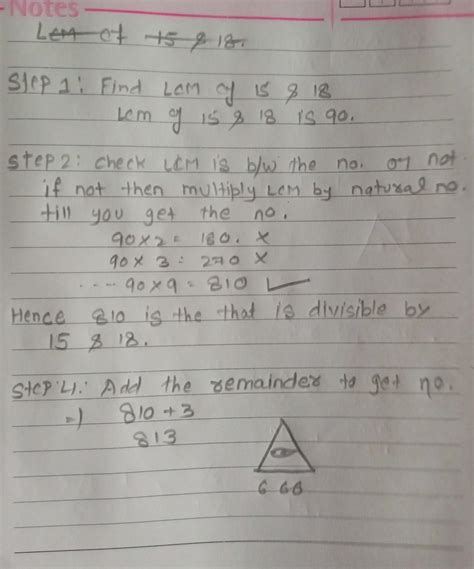 Notes
Lcm of 15 & 18.
Step 1: Find Lcm of 15 & 18
Lcm of 15 & 18 is 90.
Step 2: check LCM is b/w the no. or not
if not then multiply LCM by natural no.
till you get the no.
90 x 2 = 180. x
90 x 3 = 270 x
.... 90 x 9 = 810 ✓
Hence 810 is the that is divisible by
15 & 18.
Step 4: Add the remainder to get no.
=) 810 + 3
813
6 66